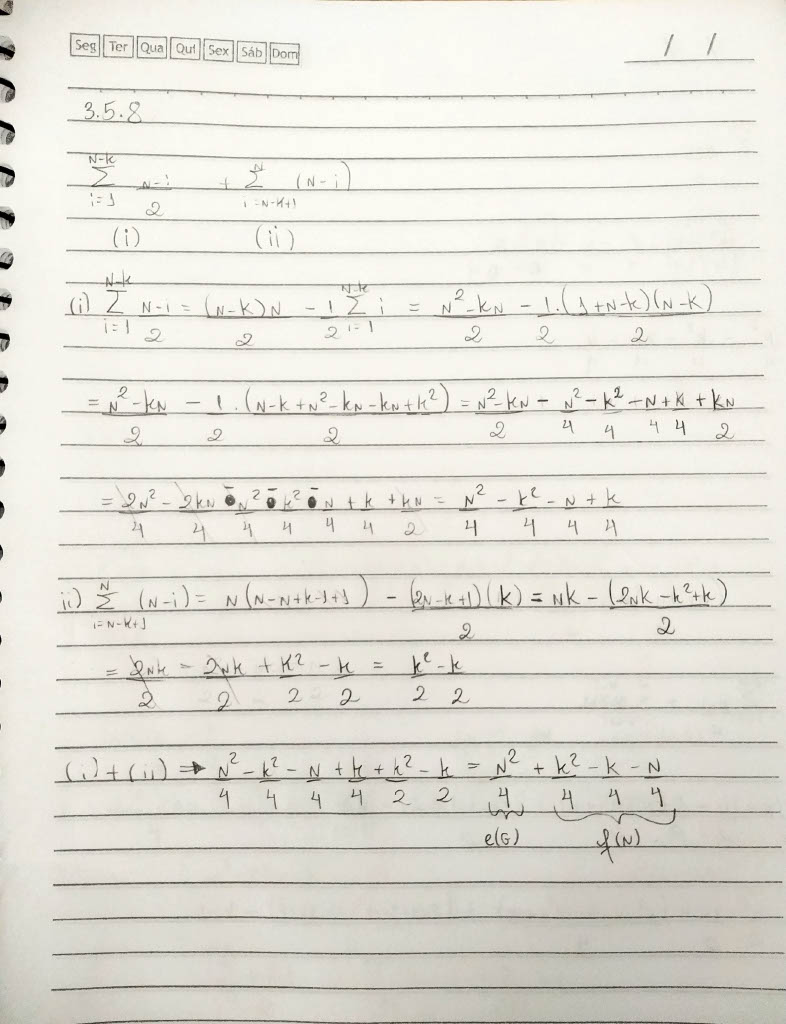 Seg Ter Qua Qui Sex Sáb Dom / /
3.5.8
∑_{i=1}^{N-k} (N-i)/2 + ∑_{i=N-k+1}^{N} (N-i)
(i) (ii)
(i) ∑_{i=1}^{N-k} (N-i)/2 = (N-k)N/2 - 1/2 ∑_{i=1}^{N-k} i = (N²-kN)/2 - 1/2 . (1+N-k)(N-k)/2
= (N²-kN)/2 - 1/2 . (N-k+N²-kN-kN+k²)/2 = (N²-kN)/2 - N²/4 - k²/4 - N/4 + k/4 + kN/2
= 2N²/4 - 2kN/4 - N²/4 - k²/4 - N/4 + k/4 + kN/2 = N²/4 - k²/4 - N/4 + k/4
ii) ∑_{i=N-k+1}^{N} (N-i) = N(N-N+k-1+1) - (2N-k+1)(k)/2 = Nk - (2Nk-k²+k)/2
= 2Nk/2 - 2Nk/2 + k²/2 - k/2 = k²/2 - k/2
(i)+(ii) ⇒ N²/4 - k²/4 - N/4 + k/4 + k²/2 - k/2 = N²/4 + k²/4 - k/4 - N/4
e(G) f(N)